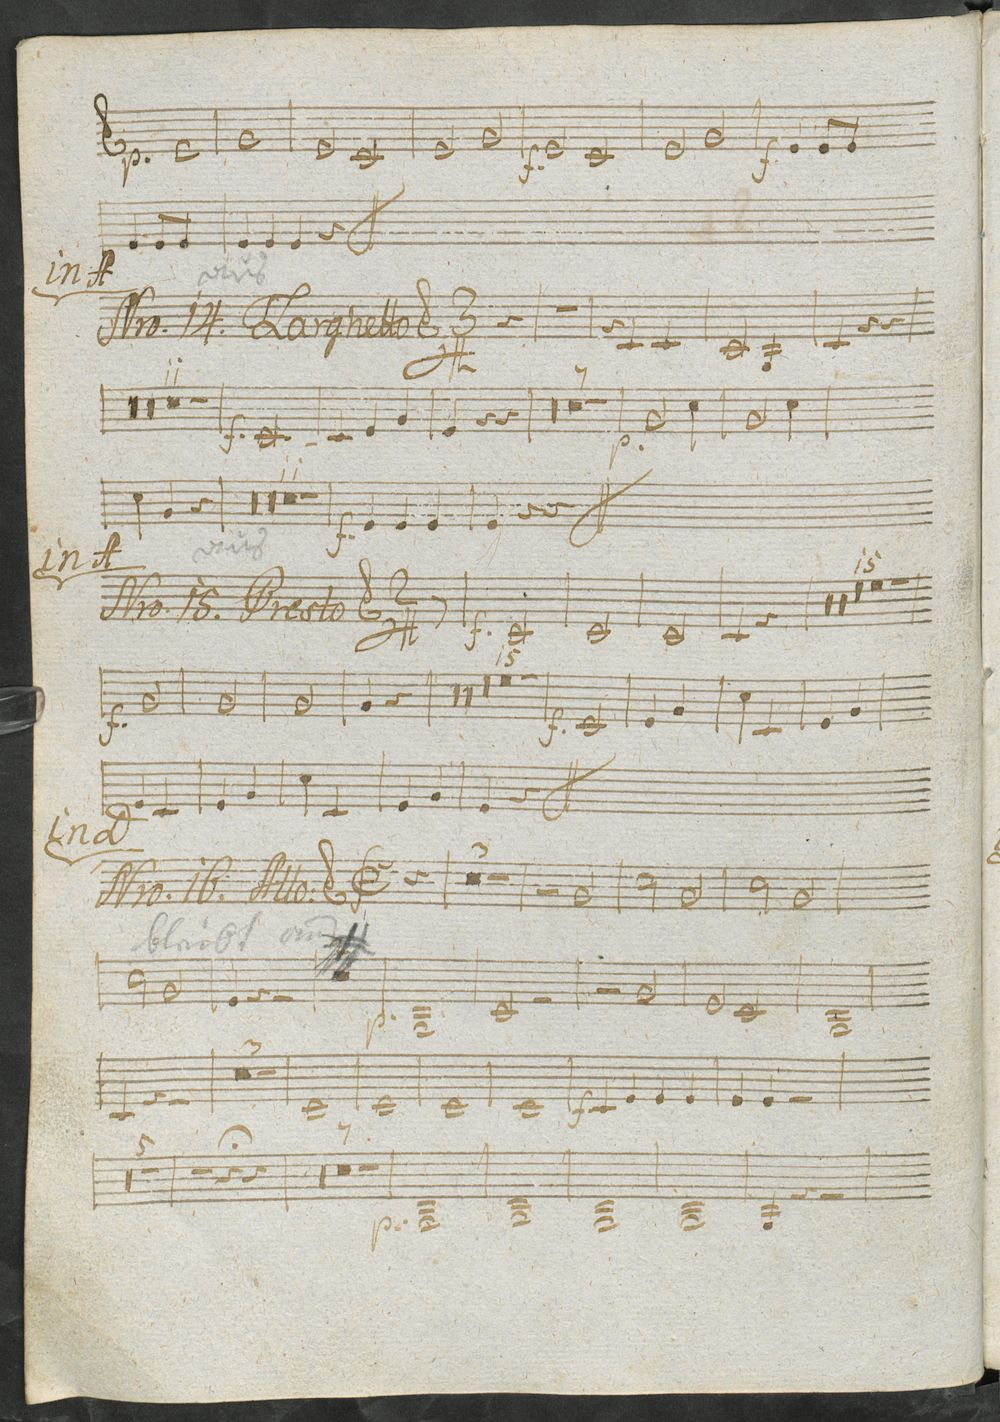 p. f. f.
in A aus
Nro. 14. Larghetto 3/4
11 7
f. p.
11
f.
in A aus
Nro. 15. Presto 2/4 15
f.
15
f. f.
in D
Nro. 16. Allo: 3
bleibt aus
p.
3
f
5 7
p.